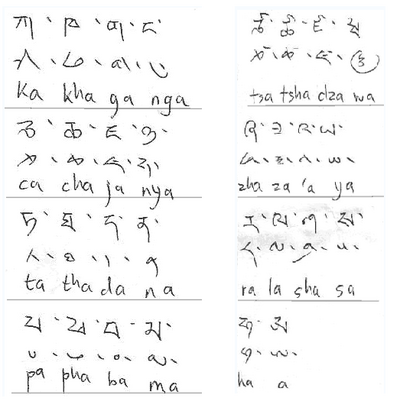 ཀ་ཁ་ག་ང་
ཀ་ཁ་ག་ང་
ka kha ga nga
ཅ་ཆ་ཇ་ཉ་
ཅ་ཆ་ཇ་ཉ་
ca cha ja nya
ཏ་ཐ་ད་ན་
ཏ་ཐ་ད་ན
ta tha da na
པ་ཕ་བ་མ་
པ་ཕ་བ་མ་
pa pha ba ma
ཙ་ཚ་ཛ་ཝ
ཙ་ཚ་ཛ་ཝ
tsa tsha dza wa
ཞ་ཟ་འ་ཡ་
ཞ་ཟ་འ་ཡ་
zha za 'a ya
ར་ལ་ཤ་ས་
ར་ལ་ཤ་ས་
ra la sha sa
ཧ་ཨ
ཧ་ཨ་
ha a